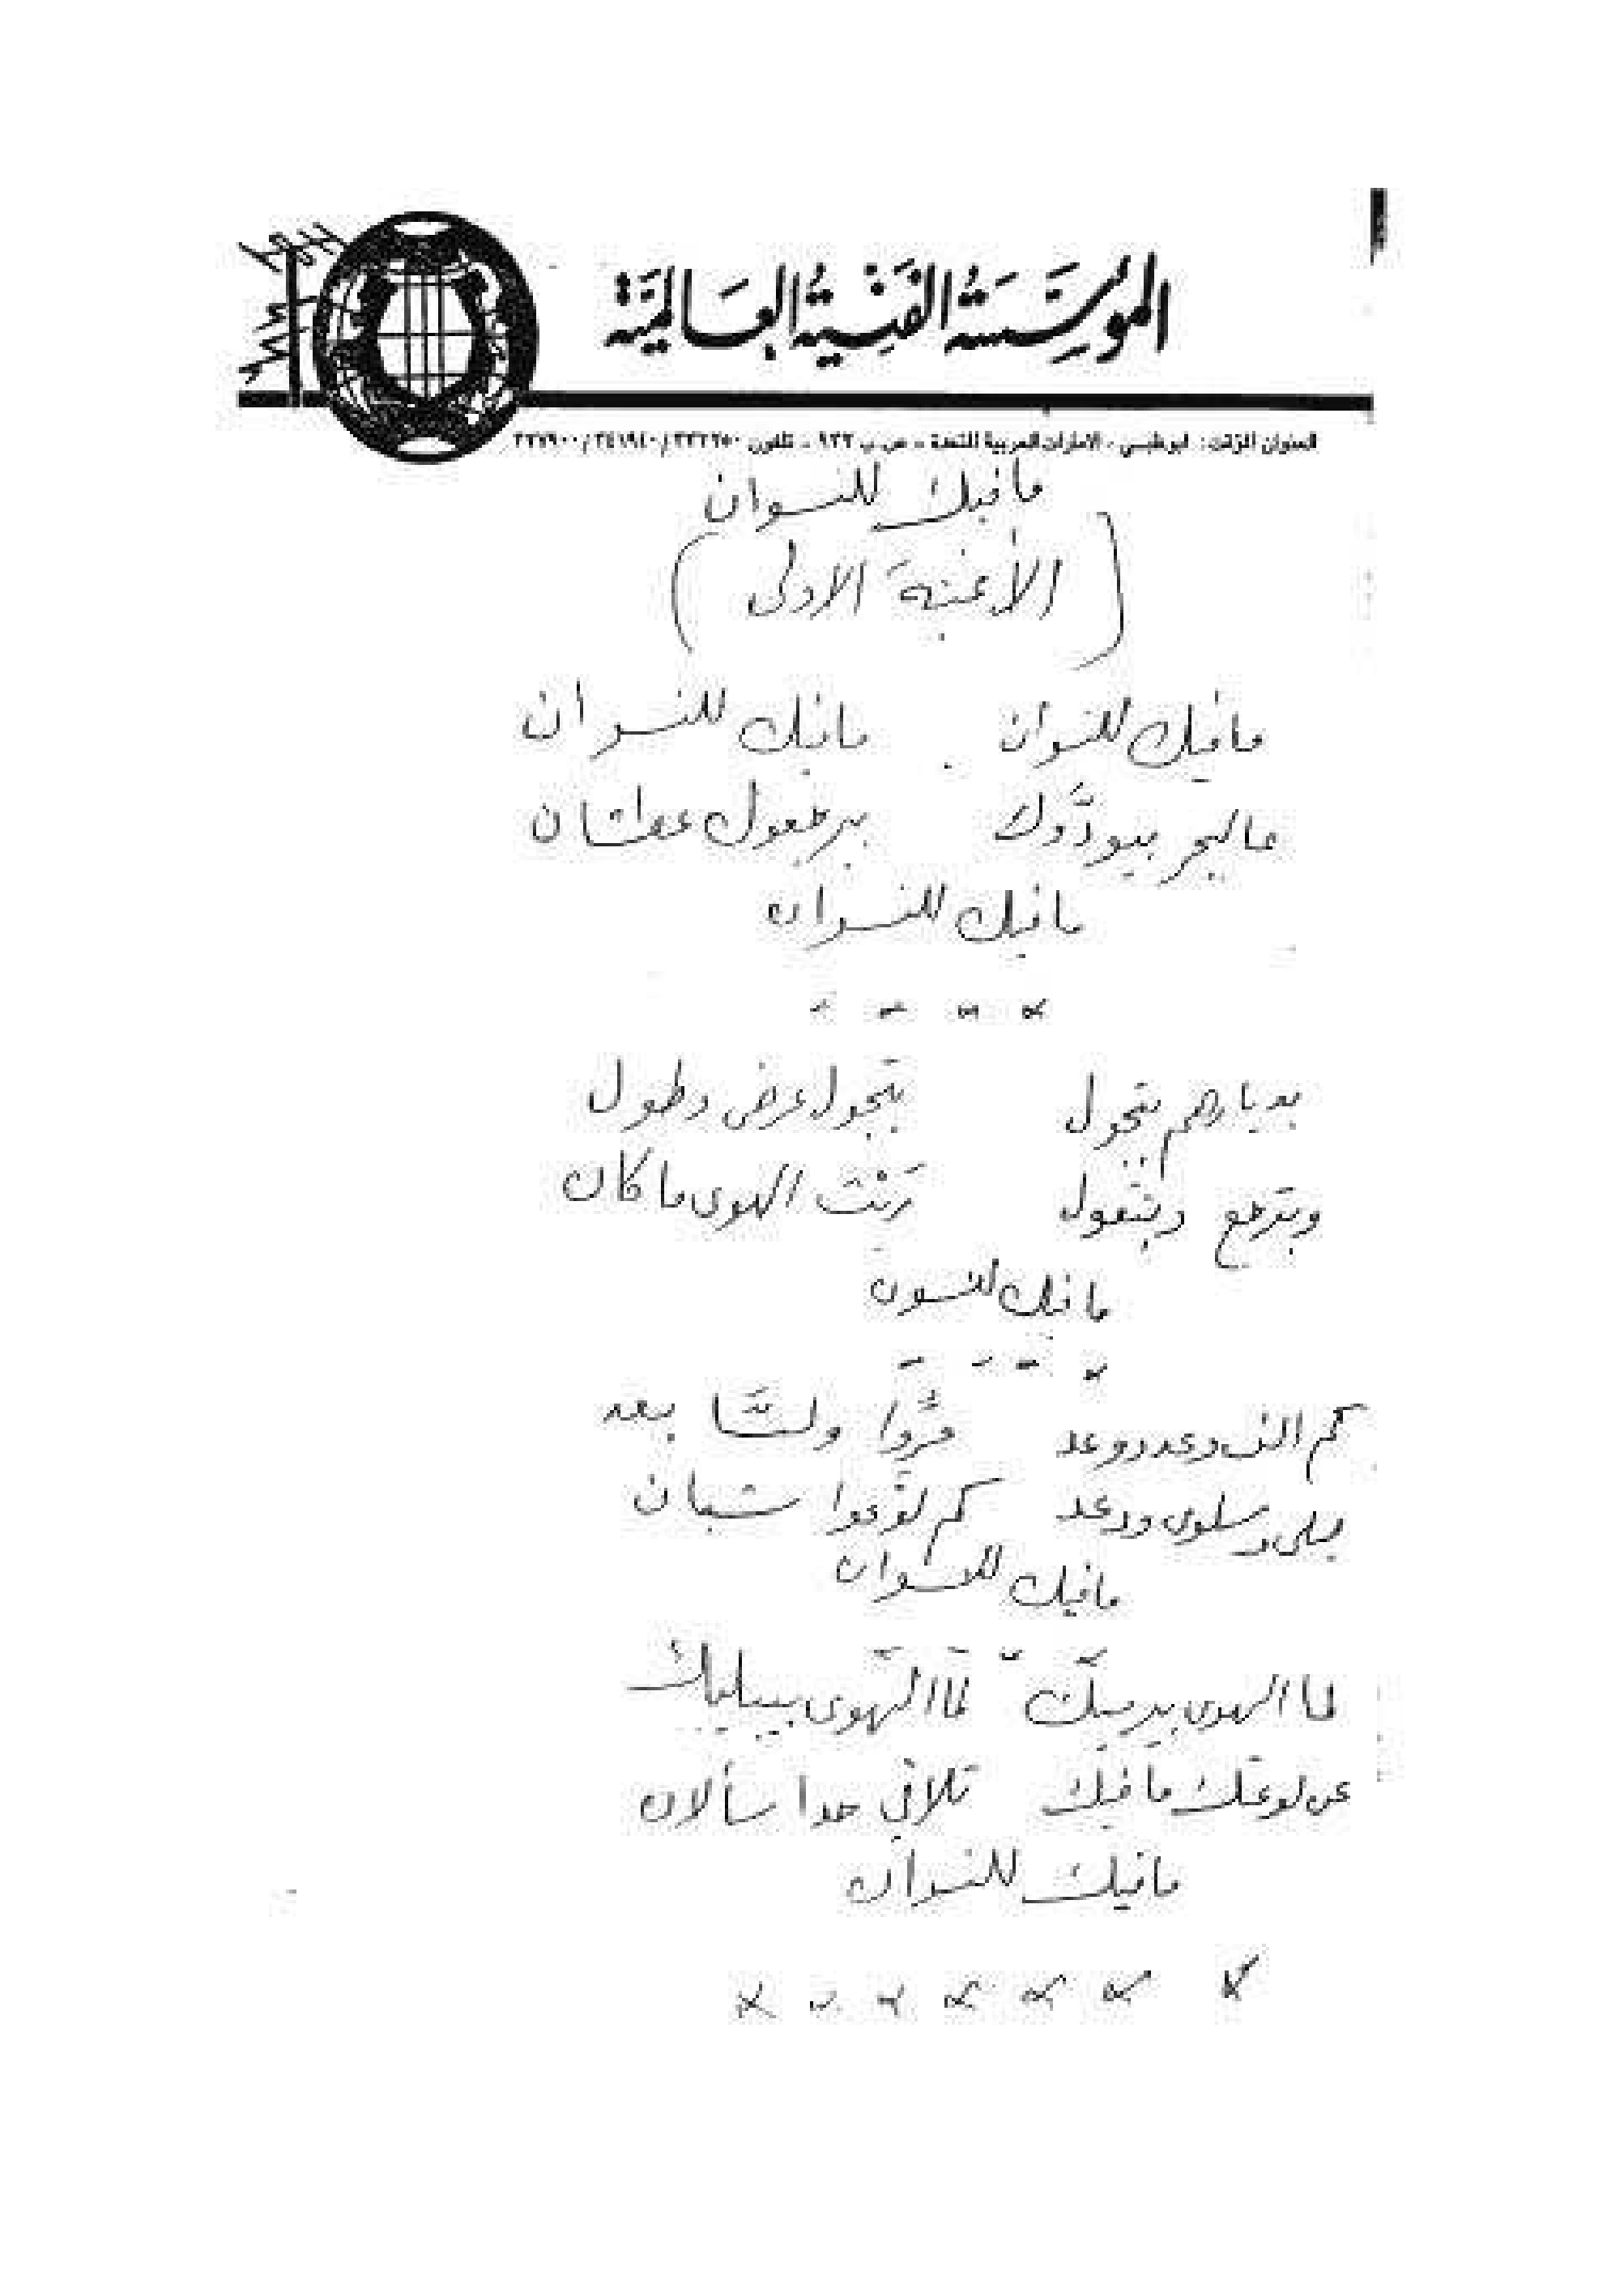 المؤسسة الفنية العالمية
العنوان المؤقت: ابوظبي - الامارات العربية المتحدة - ص ب ٩٢٢ - تلفون
مافيك للنسوان
(الأغنية الاولى)
مافيك للنسوان مافيك للنسوان
عالبحر بيودّوك بيرجعوك عطشان
مافيك للنسوان
بديارهم بتجول بتجول عرض وطول
وبترجع وبتقول ريْت الهوى ما كان
مافيك للنسوان
كم الف وعد ووعد مرّوا ولسَّا بعد
ليلى وسلوى ودعد كم لوّعوا شبان
مافيك للنسوان
لما الهوى بيرميك لما الهوى بيبليك
عن لوعتك مافيك تلاقي حدا سألان
مافيك للنسوان